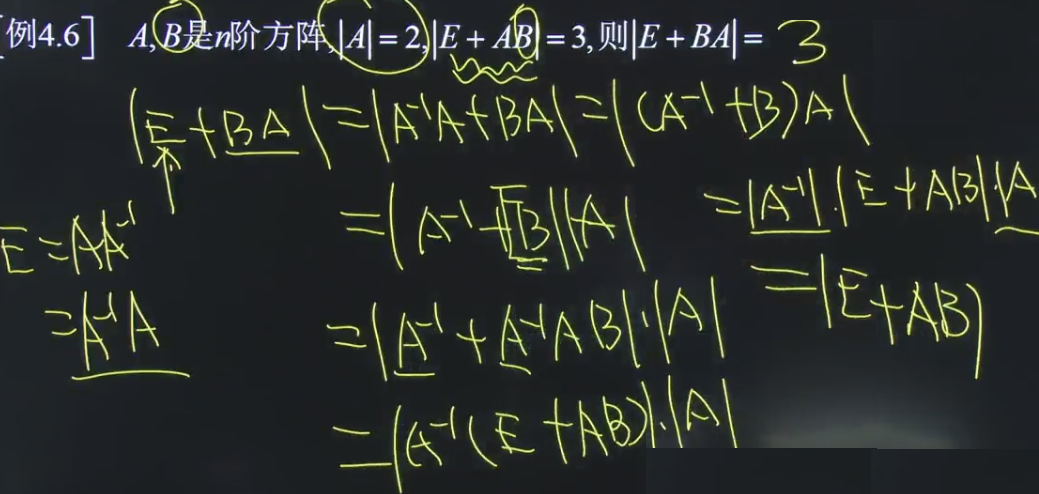 [例4.6] A,B是n阶方阵,|A|=2,|E+AB|=3,则|E+BA|= 3
|E+BA|=|A⁻¹A+BA|=|(A⁻¹+B)A|
=|A⁻¹+EB||A|
=|A⁻¹+A⁻¹AB|·|A|
=|A⁻¹(E+AB)|·|A|
=|A⁻¹|·|E+AB|·|A
=|E+AB|
E=AA⁻¹
=A⁻¹A